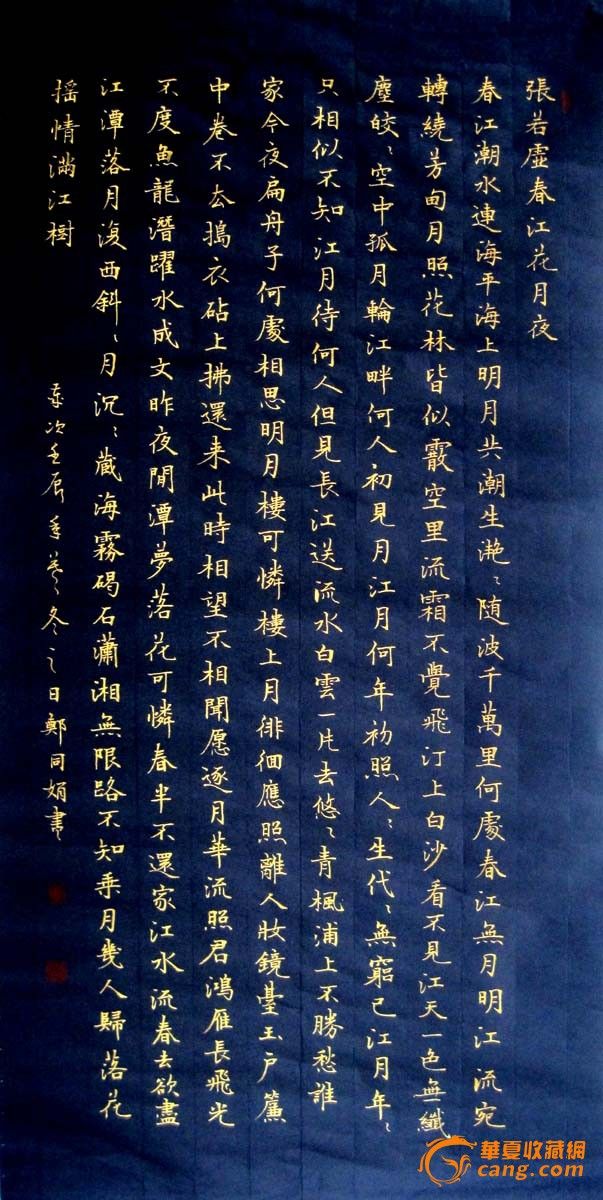 張若虛春江花月夜
春江潮水連海平海上明月共潮生灧〻随波千萬里何處春江無月明江流宛
轉繞芳甸月照花林皆似霰空里流霜不覺飛汀上白沙看不見江天一色無纖
塵皎〻空中孤月輪江畔何人初見月江月何年初照人〻生代〻無窮已江月年〻
只相似不知江月待何人但見長江送流水白雲一片去悠〻青楓浦上不勝愁誰
家今夜扁舟子何處相思明月樓可憐樓上月徘徊應照離人妝鏡臺玉户簾
中卷不去搗衣砧上拂還来此時相望不相聞愿逐月華流照君鴻雁長飛光
不度魚龍潛躍水成文昨夜閒潭夢落花可憐春半不還家江水流春去欲盡
江潭落月復西斜〻月沉〻藏海霧碣石瀟湘無限路不知乘月幾人歸落花
摇情滿江樹
次壬辰年冬之日鄭同娟書
華夏收藏網
cang.com